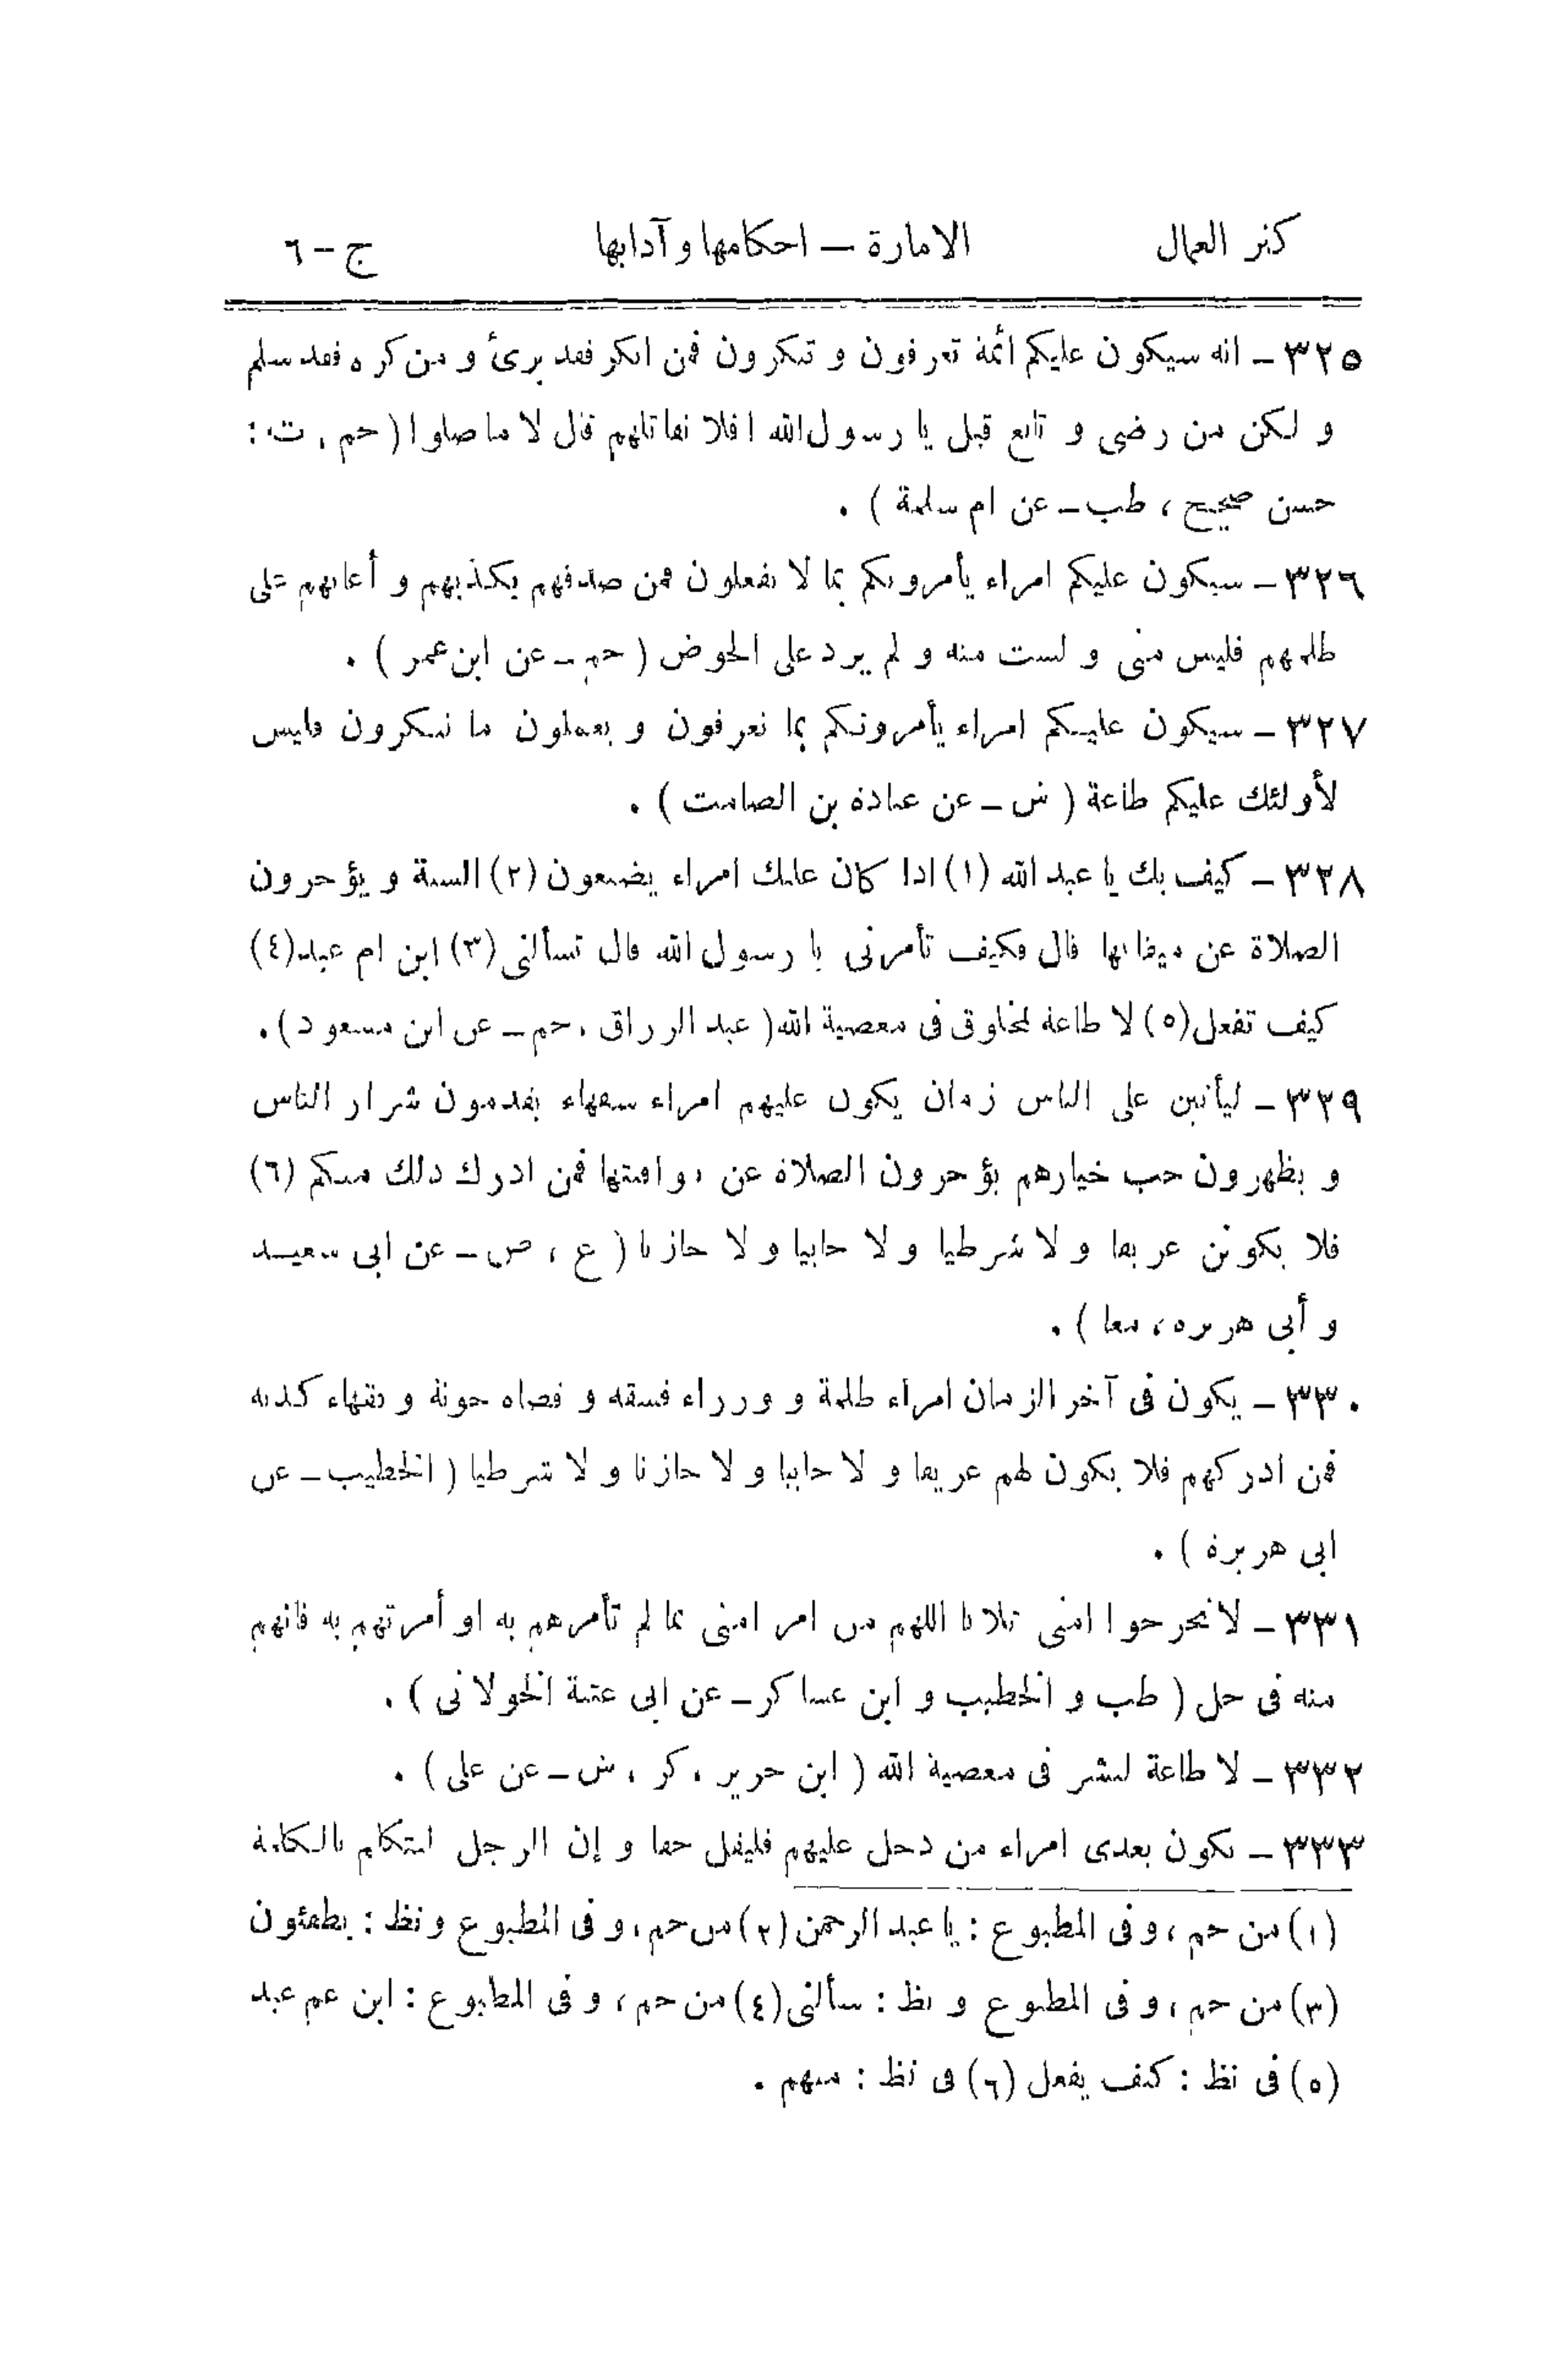 كنز العمال الامارة – احكامها و آدابها ج – ٦
٣٢٥ – انه سيكون عليكم أئمة تعرفون و تنكرون فمن انكر فقد برئ و من كره فقد سلم
و لكن من رضى و تابع قيل يا رسول الله افلا نقاتلهم قال لا ما صلوا ( حم ، ت :
حسن صحيح ، طب – عن ام سلمة ) .
٣٢٦ – سيكون عليكم امراء يأمرونكم بما لا يفعلون فمن صدقهم بكذبهم و أعانهم على
ظلمهم فليس منى و لست منه و لم يرد على الحوض ( حم – عن ابن عمر ) .
٣٢٧ – سيكون عليكم امراء يأمرونكم بما تعرفون و يعملون ما تنكرون فليس
لأولئك عليكم طاعة ( ش – عن عبادة بن الصامت ) .
٣٢٨ – كيف بك يا عبد الله (١) اذا كان عليك امراء يضيعون (٢) السنة و يؤخرون
الصلاة عن ميقاتها قال فكيف تأمرنى يا رسول الله قال تسألنى (٣) ابن ام عبد (٤)
كيف تفعل (٥) لا طاعة لمخلوق فى معصية الله ( عبد الرزاق ، حم – عن ابن مسعود ) .
٣٢٩ – ليأتين على الناس زمان يكون عليهم امراء سفهاء يقدمون شرار الناس
و يظهرون حب خيارهم يؤخرون الصلاة عن مواقيتها فمن ادرك ذلك منكم (٦)
فلا يكونن عريفا و لا شرطيا و لا جابيا و لا خازنا ( ع ، ص – عن ابى سعيد
و أبى هريرة ، معا ) .
٣٣٠ – يكون فى آخر الزمان امراء ظلمة و وزراء فسقة و قضاة خونة و فقهاء كذبة
فمن ادركهم فلا يكون لهم عريفا و لا جابيا و لا خازنا و لا شرطيا ( الخطيب – عن
ابى هريرة ) .
٣٣١ – لا تحرجوا امتى ثلاثا اللهم من امر امتى بما لم تأمرهم به او أمرتهم به فانهم
منه فى حل ( طب و الخطيب و ابن عساكر – عن ابى عتبة الخولانى ) .
٣٣٢ – لا طاعة لبشر فى معصية الله ( ابن جرير ، كر ، ش – عن على ) .
٣٣٣ – تكون بعدى امراء من دخل عليهم فليقل حقا و إن الرجل ليتكلم بالكلمة
(١) من حم ، و فى المطبوع : يا عبد الرحمن (٢) من حم ، و فى المطبوع و نظ : يطفئون
(٣) من حم ، و فى المطبوع و نظ : سألنى (٤) من حم ، و فى المطبوع : ابن عم عبد
(٥) فى نظ : كيف يفعل (٦) فى نظ : منهم .